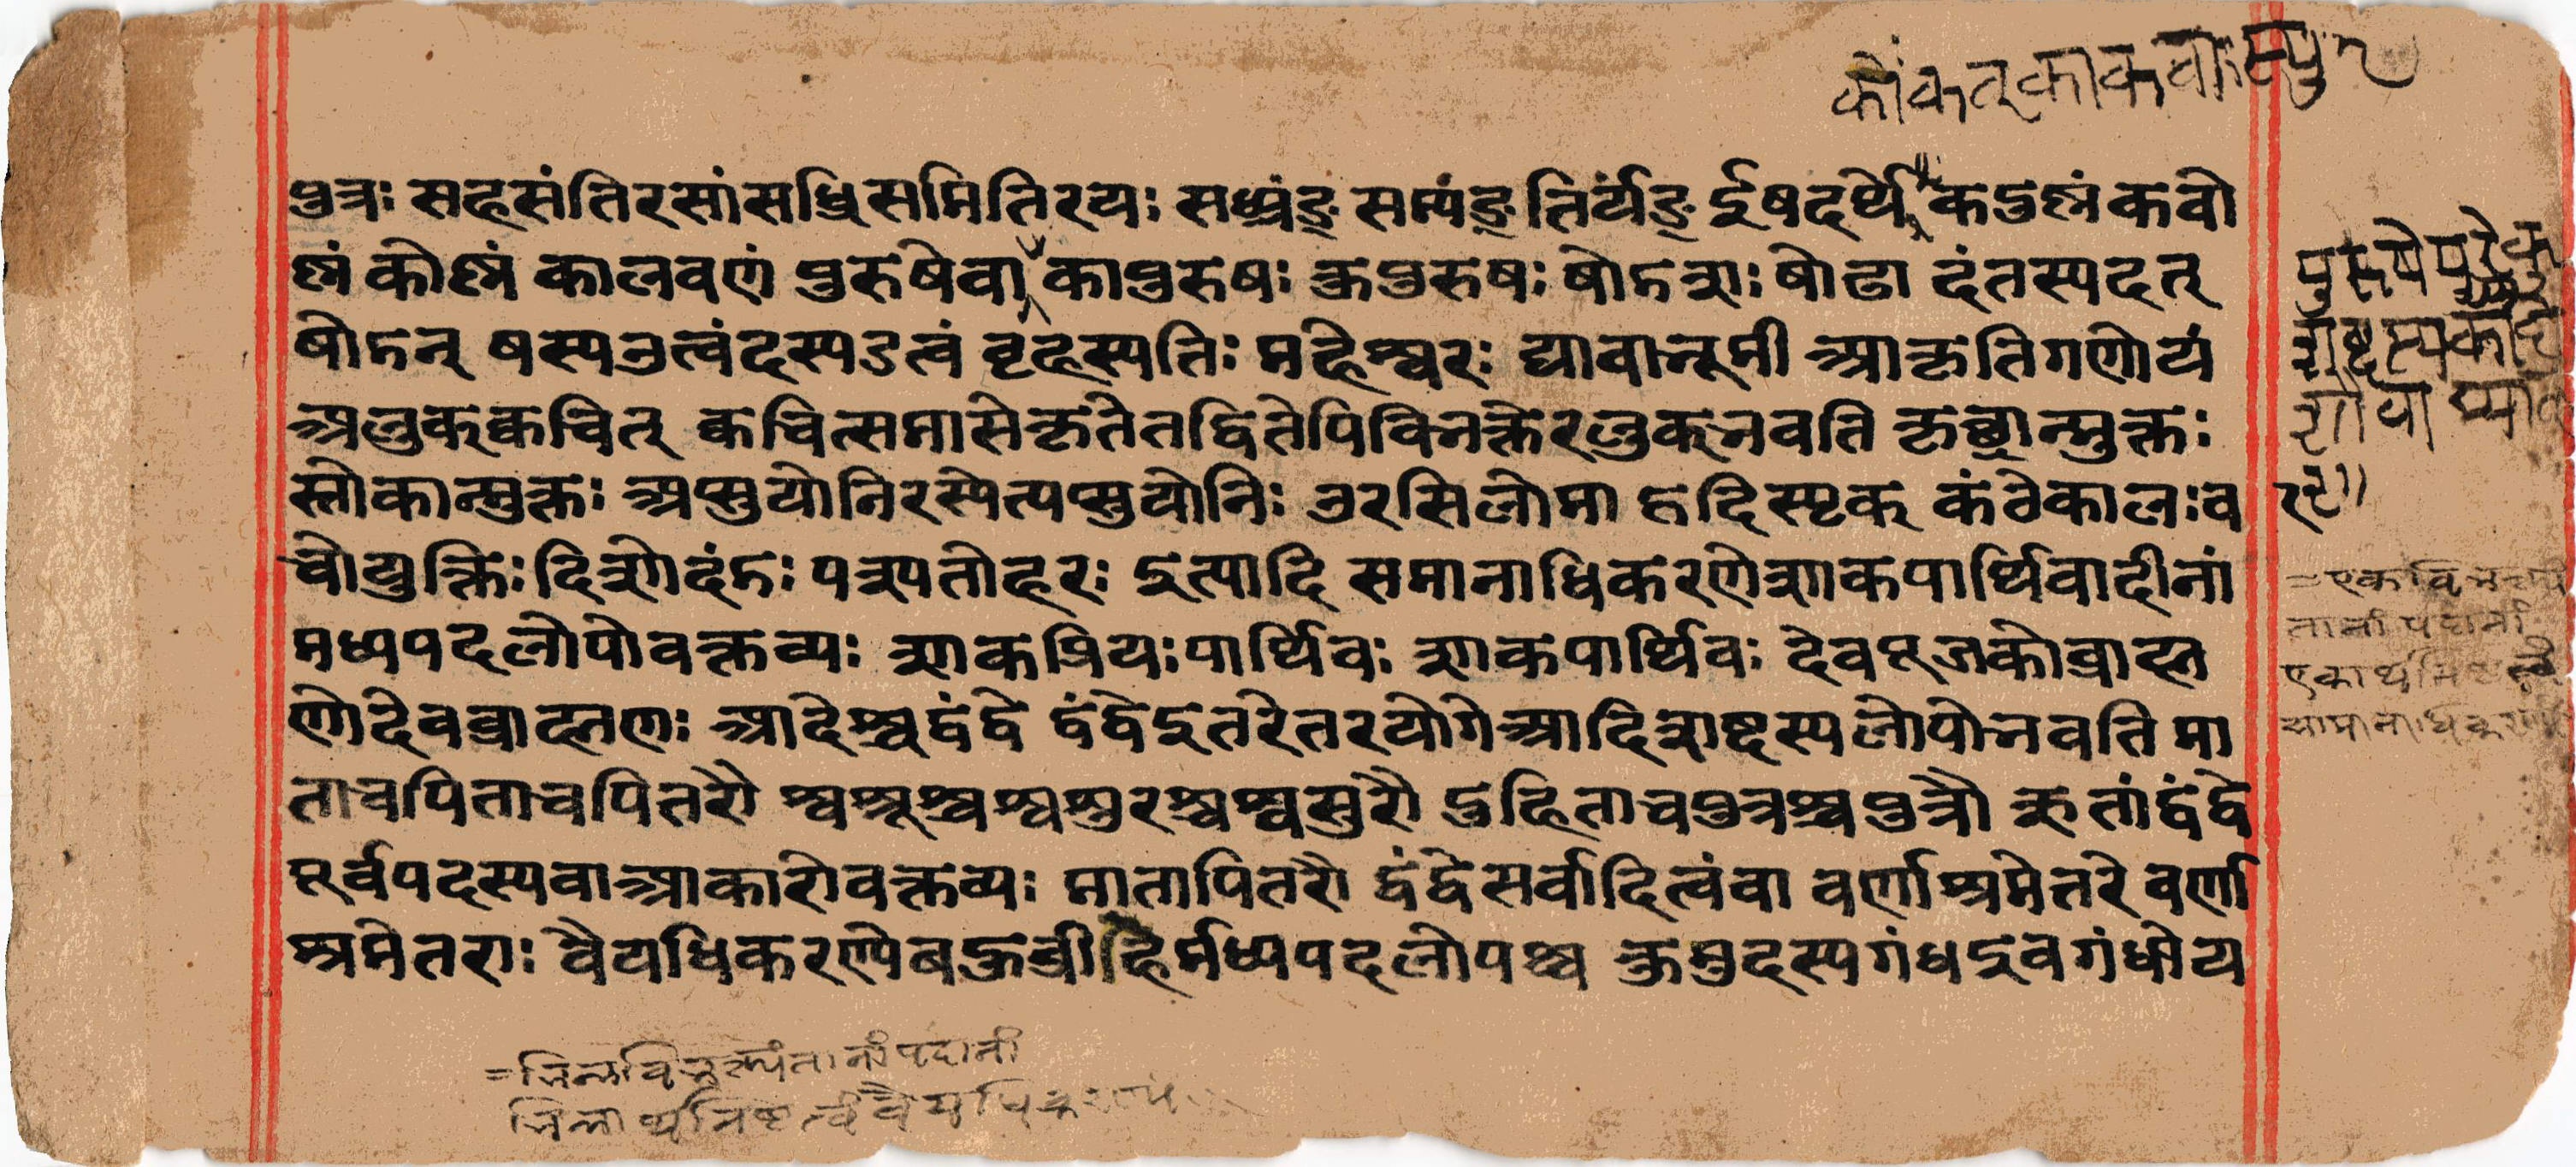 कोंकत्काकवाःस्युः
पुत्रः सहसंतिरसांसध्रिसमितिरयः सध्र्यंङ् सम्यंङ् तिर्यंङ् ईषदर्थे कउष्णं कवो
ष्णं कोष्णं कालवणं पुरुषेवा कापुरुषः कुपुरुषः षोडशः षोढा दंतस्यदतृ
षोडन् षस्यउत्वंदस्यडत्वं बृहस्पतिः महेश्वरः द्यावाभूमी आकृतिगणोयं
अलुक्क्वचित् क्वचित्समासेकृतेतद्धितेपिविभक्तेरलुक्भवति कृछ्रान्मुक्तः
स्तोकान्मुक्तः अप्सुयोनिरस्येत्यप्सुयोनिः उरसिलोमा हृदिस्पृक् कंठेकालः व
चोयुक्तिः दिशोदंडः पश्यतोहरः इत्यादि समानाधिकरणेशाकपार्थिवादीनां
मध्यपदलोपोवक्तव्यः शाकप्रियःपार्थिवः शाकपार्थिवः देवपूजकोब्राह्म
णोदेवब्राह्मणः आदेश्चद्वंद्वे द्वंद्वेइतरेतरयोगेआदिशब्दस्यलोपोभवति मा
ताचपिताचपितरौ श्वश्रूश्चश्वशुरश्चश्वसुरौ दुहिताचपुत्रश्चपुत्रौ ऋतांद्वंद्वे
पूर्वपदस्यवाआकारोवक्तव्यः मातापितरौ द्वंद्वेसर्वादित्वंवा वर्णाश्रमेतरे वर्णा
श्रमेतराः वैयधिकरण्येबहुव्रीहिर्मध्यपदलोपश्च कुमुदस्यगंधइवगंधोय
पुरुषेपरेकु
शब्दस्यकादे
शोवा स्यात्
=एकविभक्त्यं
तानां पदानां
एकार्थनिष्टत्वं
सामानाधिकरण्यं
=भिन्नविभक्त्यंतानांपदानां
भिन्नार्थनिष्टत्वंवैयधिकरण्यं